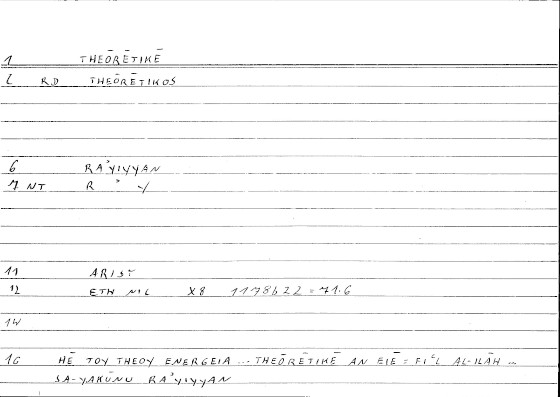 1 THEŌRĒTIKĒ
2 RD THEŌRĒTIKOS
6 RAʾYIYYAN
7 NT R ʾ Y
11 ARIST
12 ETH NIC X8 1178b22 = 71.6
14
16 HĒ TOY THEOY ENERGEIA ... THEŌRĒTIKĒ AN EIĒ = FIʿL AL-ILĀH ...
SA-YAKŪNU RAʾYIYYAN